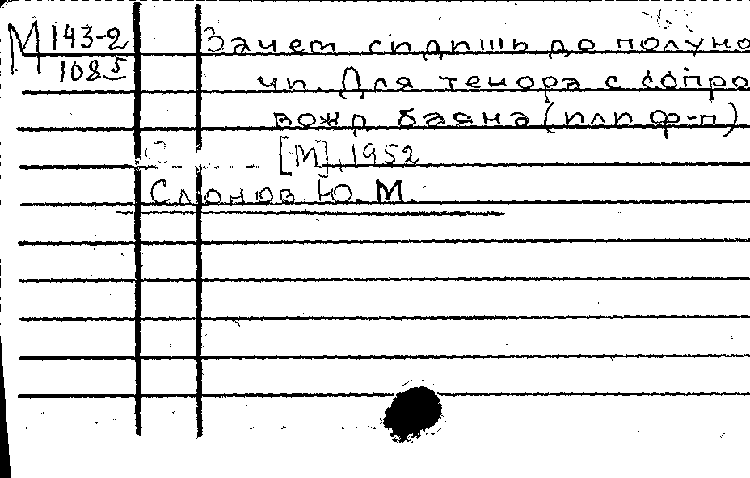 М 143-2
108 5
Зачем сидишь до полуно
чи. Для тенора с сопро
вожд баяна (или ф-п)
[М], 1952
Слонов Ю. М.